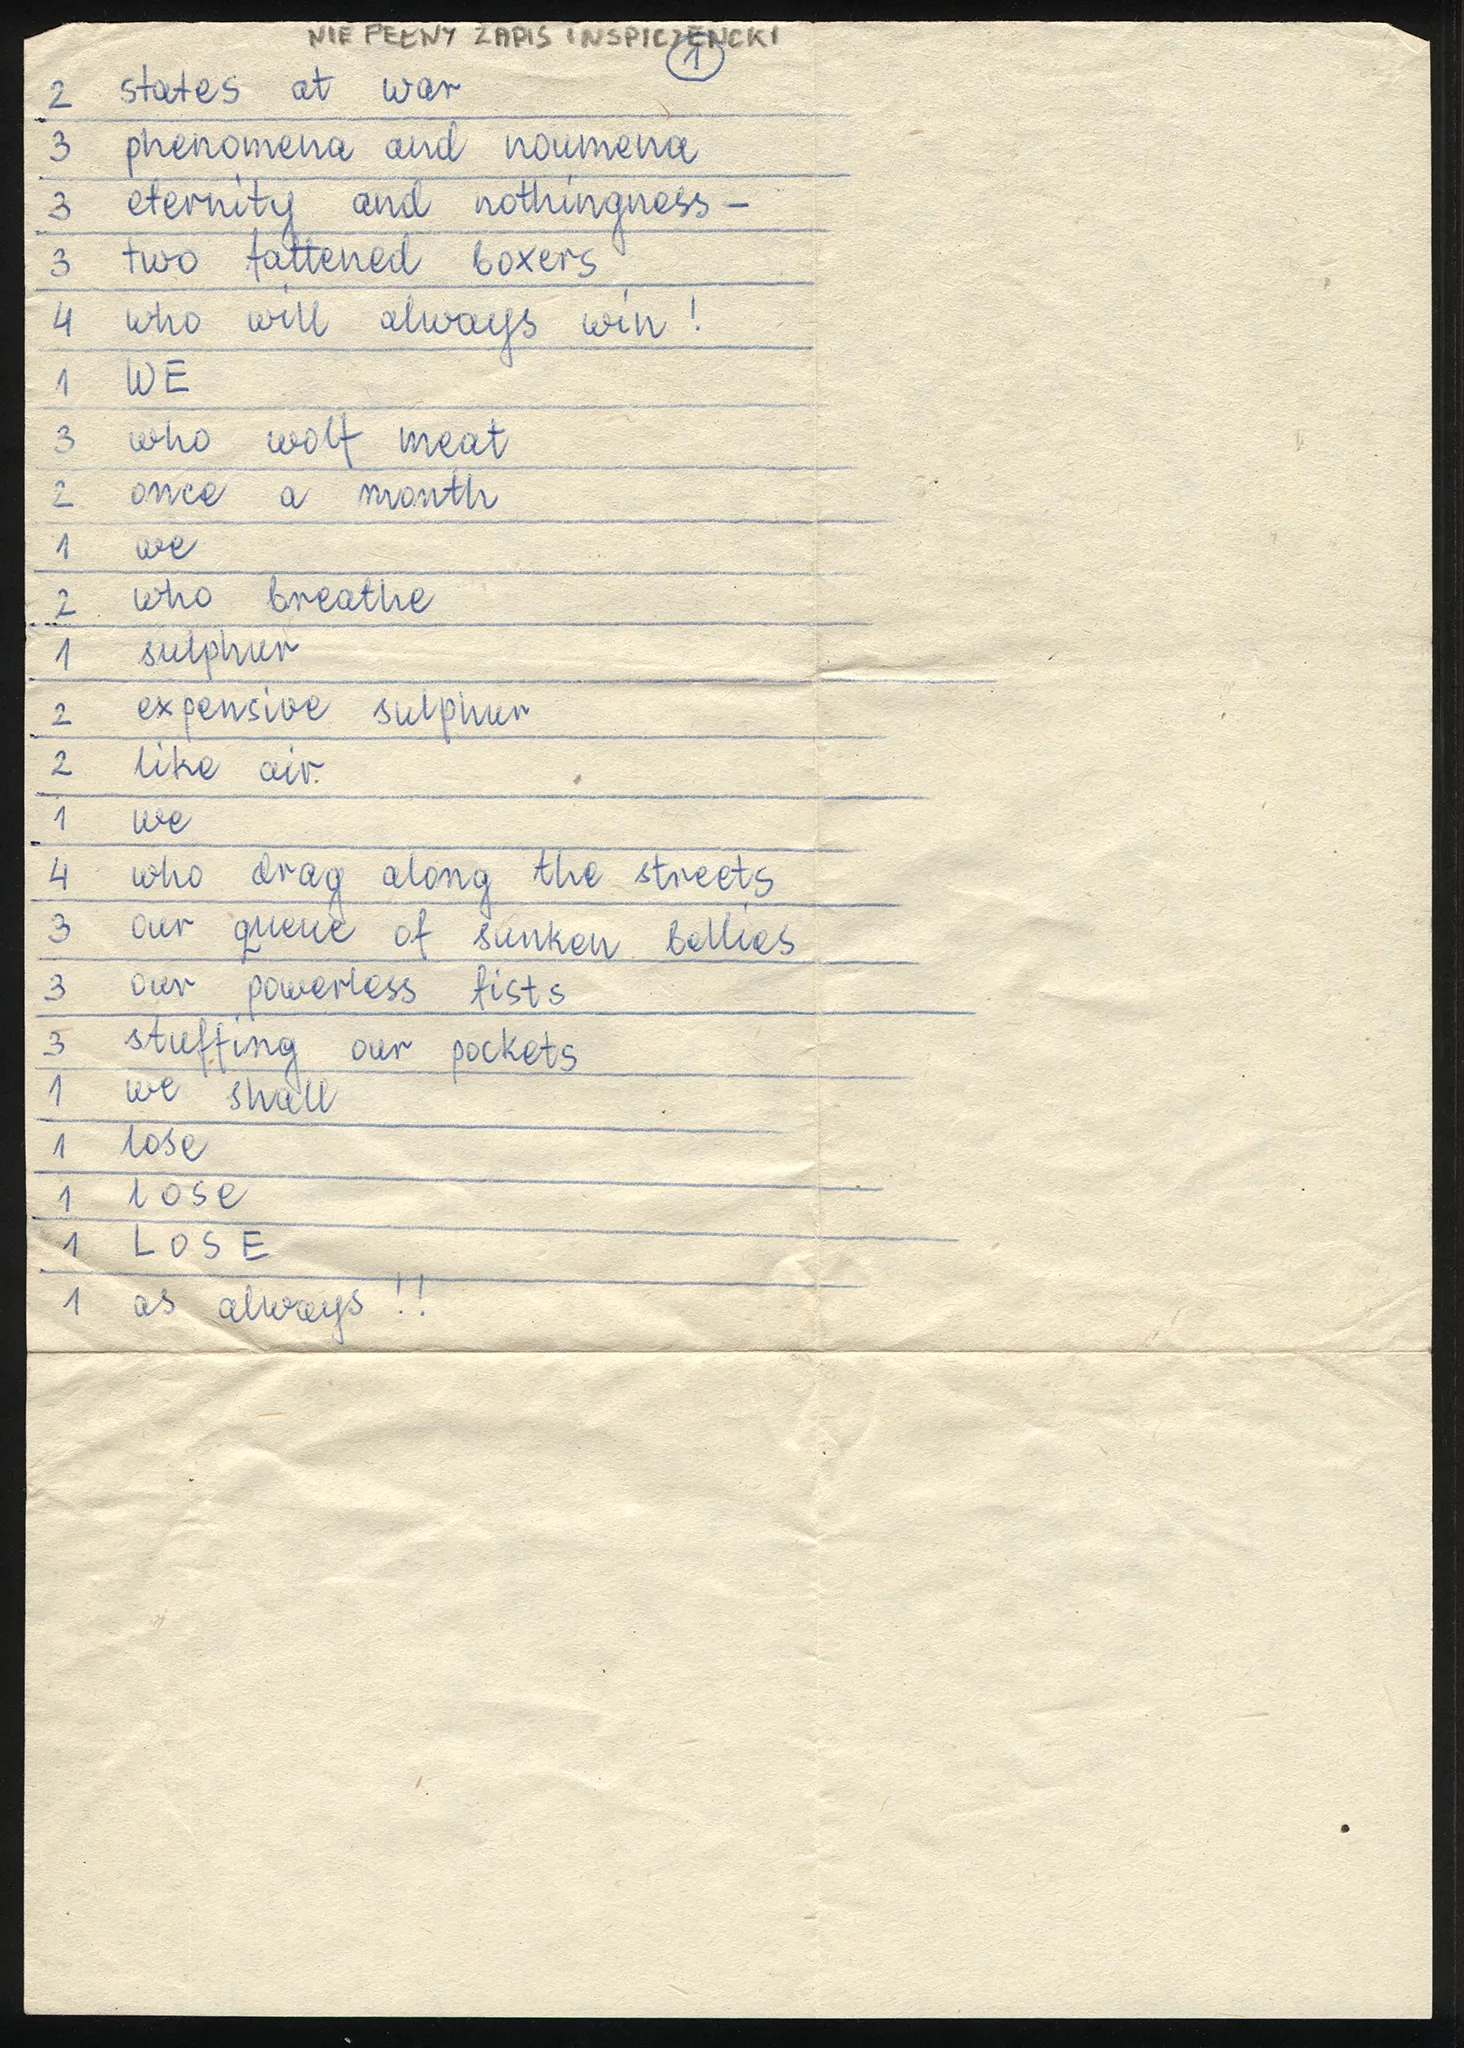 NIE PEŁNY ZAPIS INSPICZENCKI
1
2 states at war
3 phenomena and noumena
3 eternity and nothingness –
3 two fattened boxers
4 who will always win!
1 WE
3 who wolf meat
2 once a month
1 we
2 who breathe
1 sulphur
2 expensive sulphur
2 like air.
1 we
4 who drag along the streets
3 our queue of sunken bellies
3 our powerless fists
3 stuffing our pockets
1 we shall
1 lose
1 lose
1 LOSE
1 as always!!